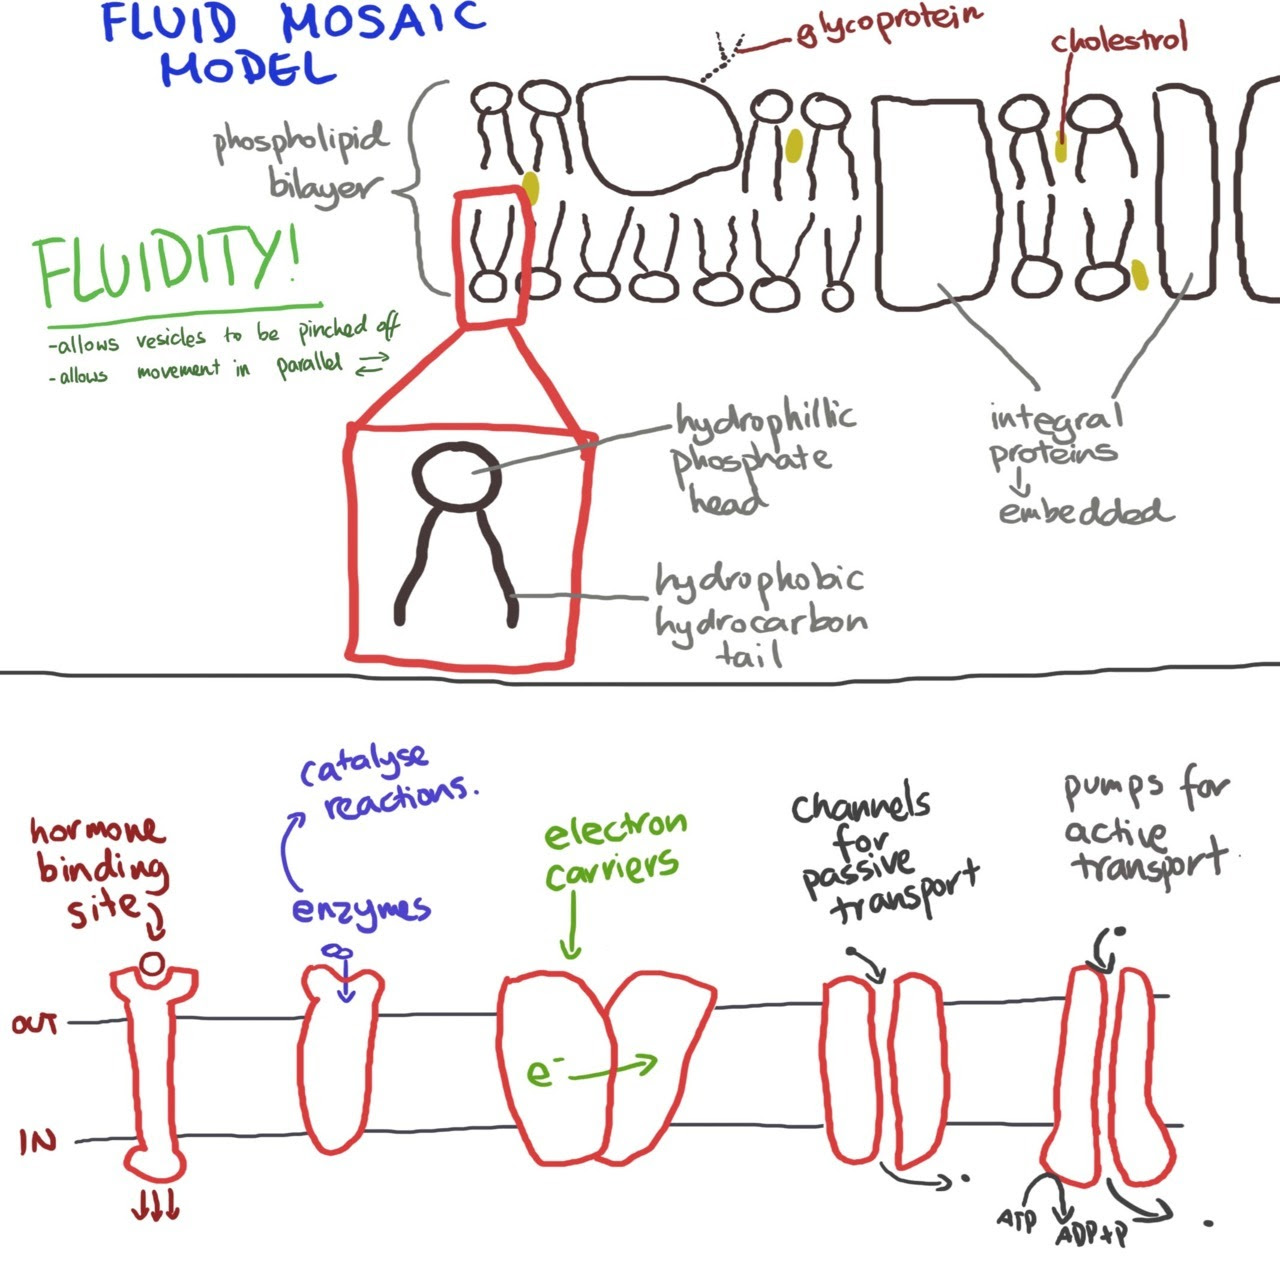 FLUID MOSAIC
MODEL
glycoprotein
cholestrol
phospholipid
bilayer
FLUIDITY!
-allows vesicles to be pinched off
-allows movement in parallel
hydrophillic
phosphate
head
hydrophobic
hydrocarbon
tail
integral
proteins
embedded
hormone
binding
site
catalyse
reactions.
enzymes
electron
carriers
channels
for
passive
transport
pumps for
active
transport.
OUT
e⁻
IN
ATP
ADP+P